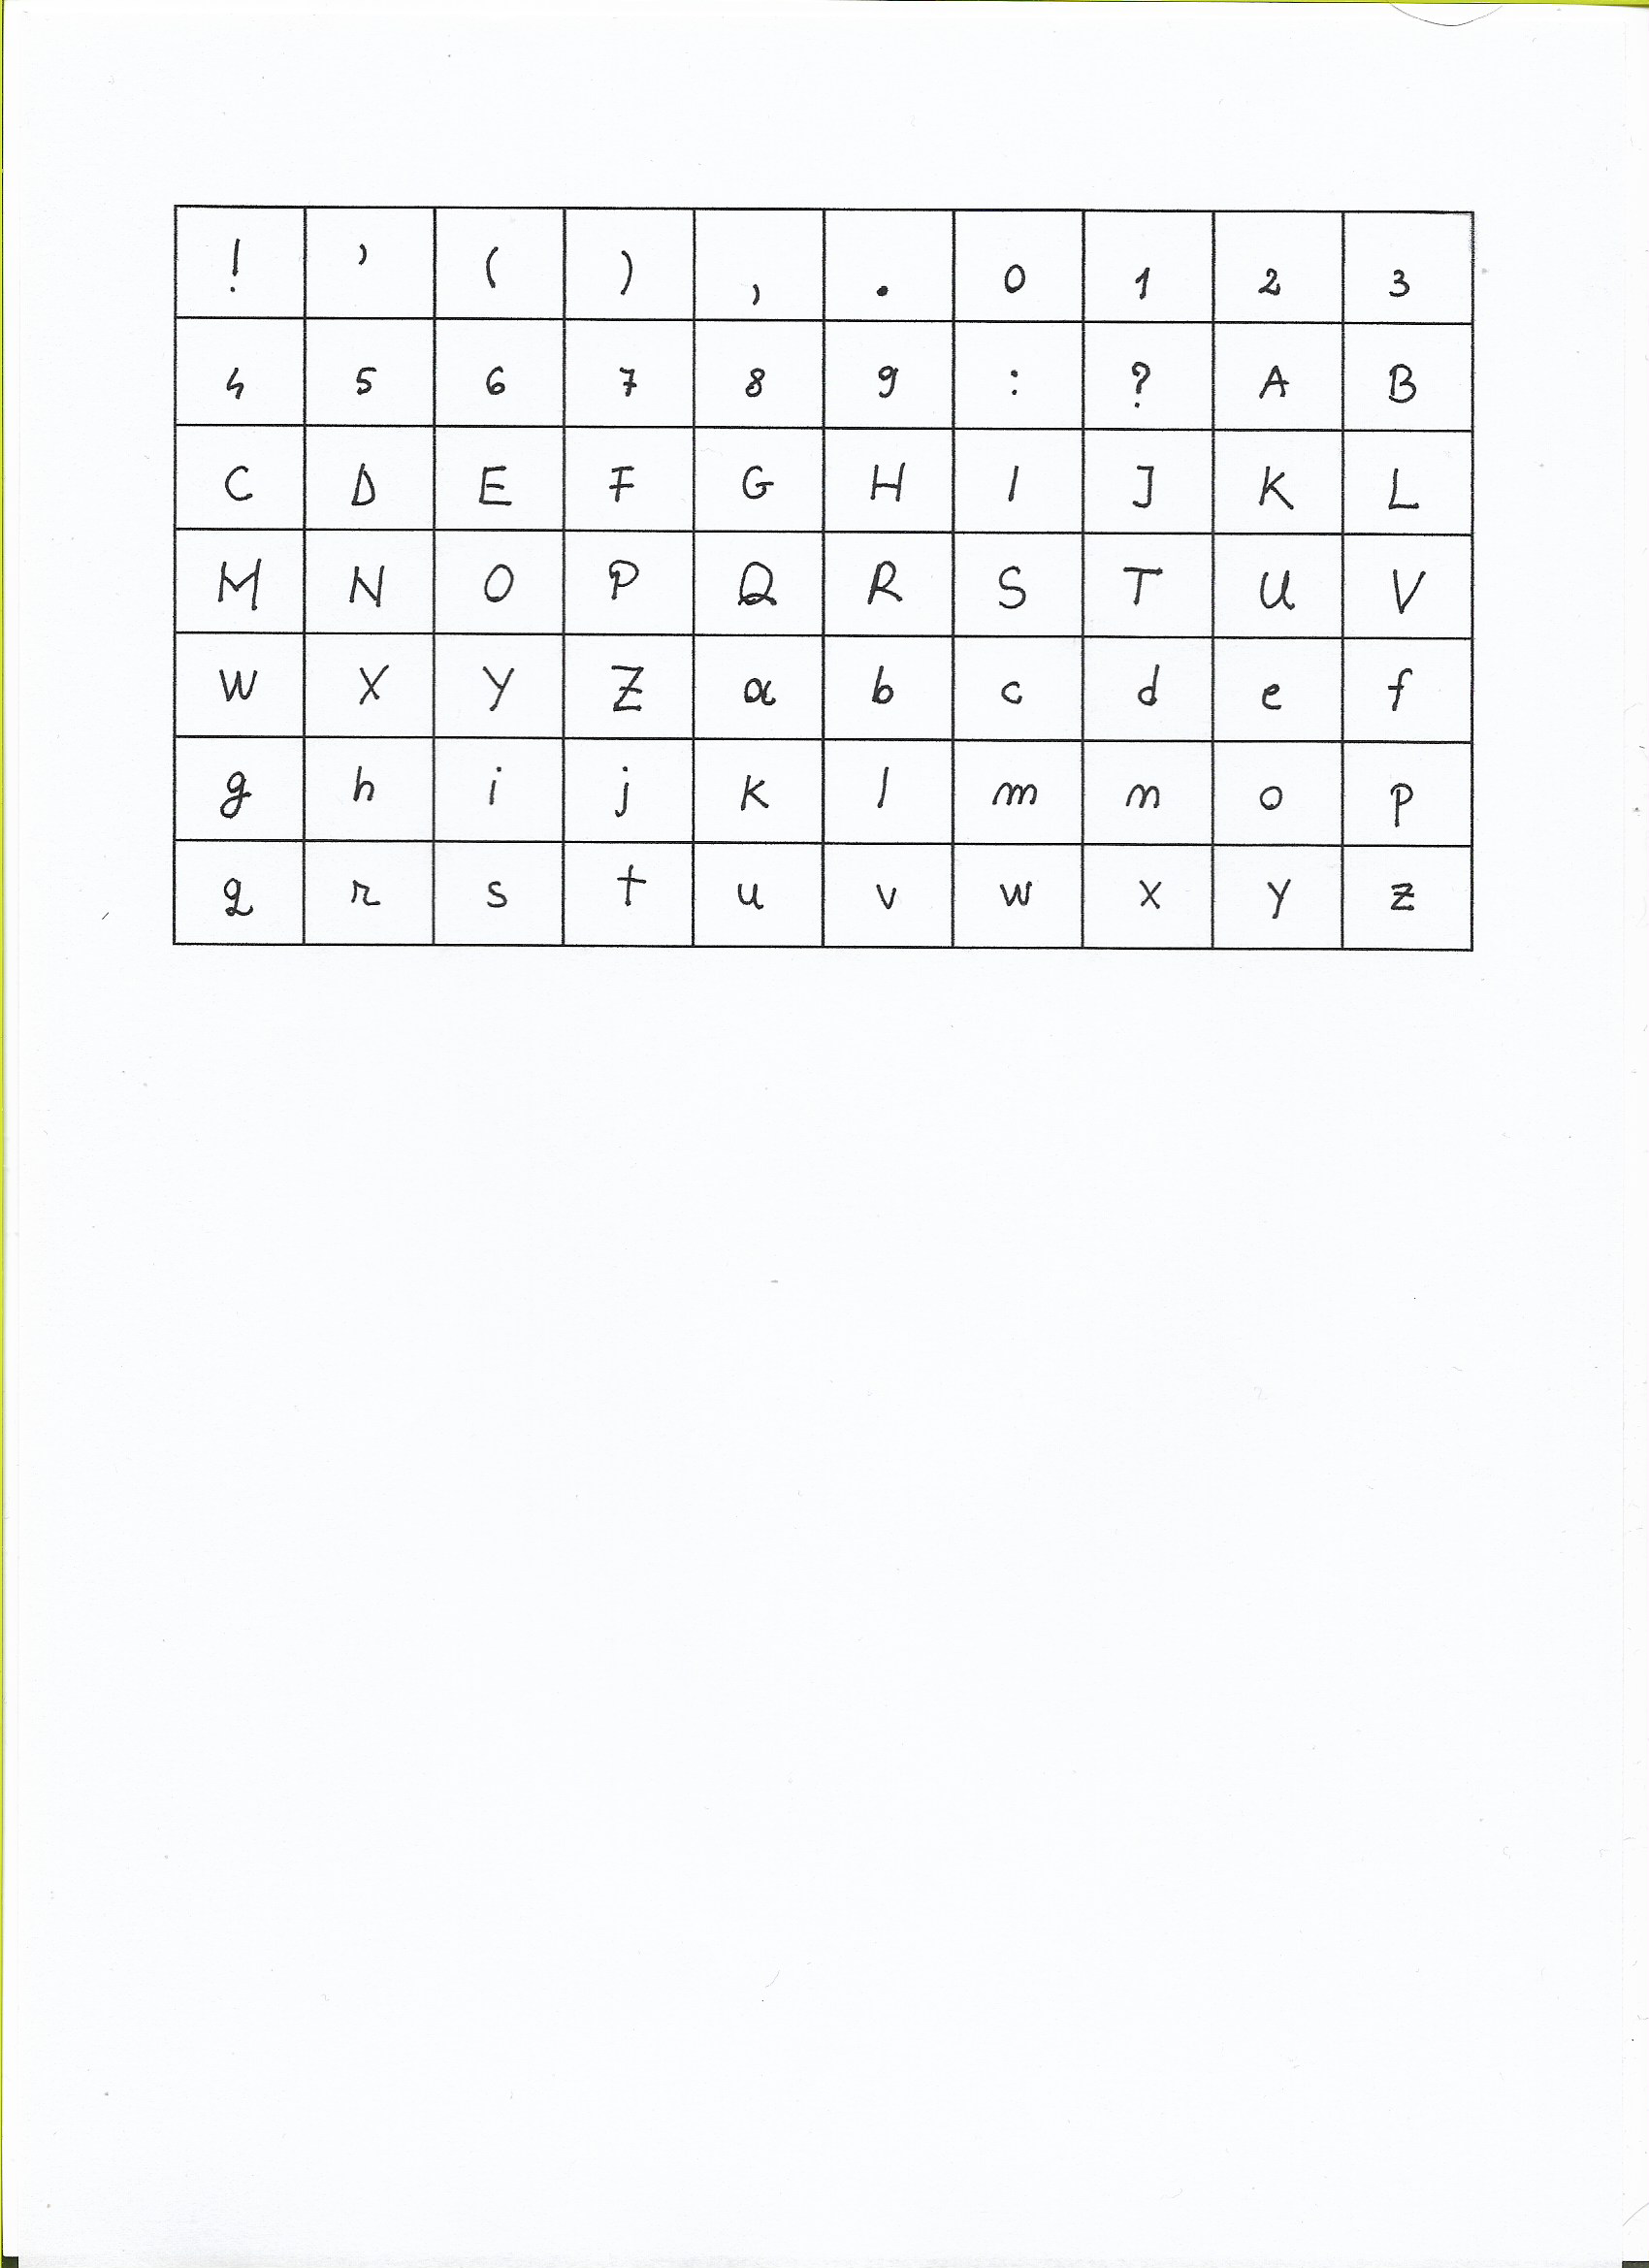 ! ' ( ) , . 0 1 2 3
4 5 6 7 8 9 : ? A B
C D E F G H I J K L
M N O P Q R S T U V
W X Y Z a b c d e f
g h i j k l m n o p
q r s t u v w x y z